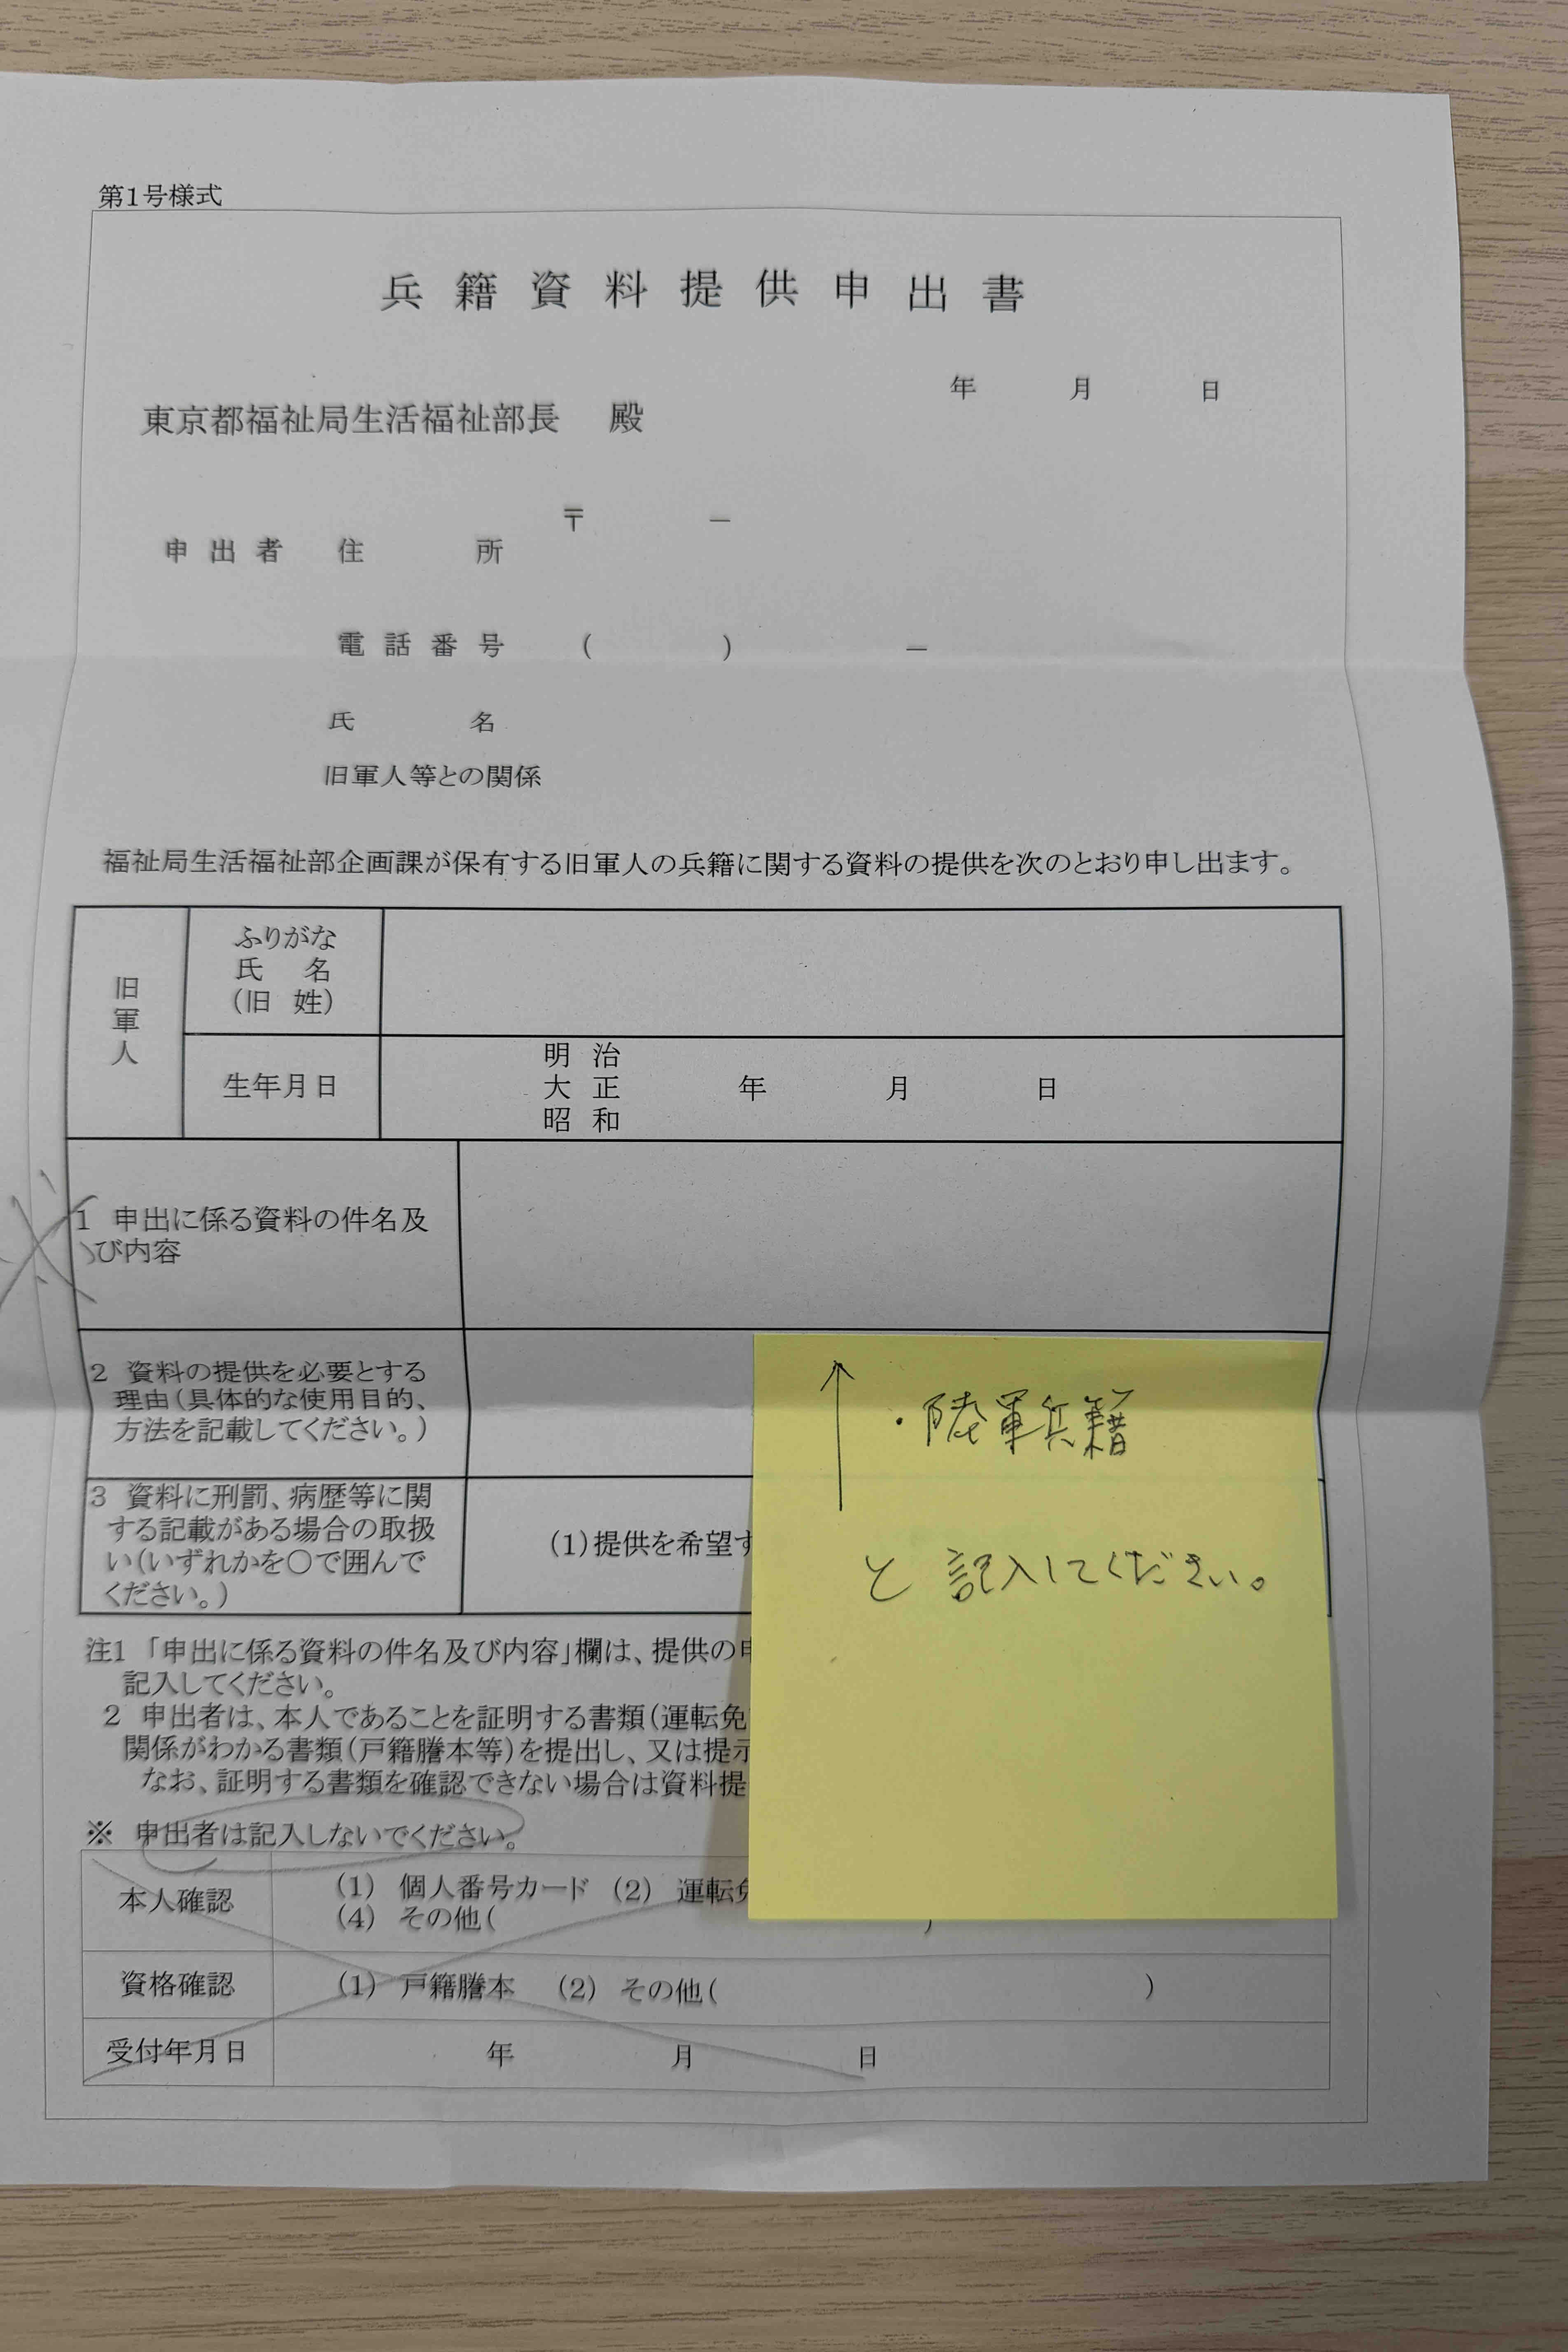 第1号様式
兵籍資料提供申出書
年 月 日
東京都福祉局生活福祉部長 殿
〒 ―
申出者 住所
電話番号 ( ) ―
氏名
旧軍人等との関係
福祉局生活福祉部企画課が保有する旧軍人の兵籍に関する資料の提供を次のとおり申し出ます。
旧軍人
ふりがな
氏名
(旧姓)
生年月日
明治
大正 年 月 日
昭和
※
1 申出に係る資料の件名及
び内容
2 資料の提供を必要とする
理由(具体的な使用目的、
方法を記載してください。)
3 資料に刑罰、病歴等に関
する記載がある場合の取扱
い(いずれかを○で囲んで
ください。)
(1)提供を希望す
↑
・陸軍兵籍
と記入してください。
注1 「申出に係る資料の件名及び内容」欄は、提供の申
記入してください。
2 申出者は、本人であることを証明する書類(運転免
関係がわかる書類(戸籍謄本等)を提出し、又は提示
なお、証明する書類を確認できない場合は資料提
※ 申出者は記入しないでください。
本人確認
(1) 個人番号カード (2) 運転免
(4) その他( )
資格確認
(1) 戸籍謄本 (2) その他( )
受付年月日
年 月 日